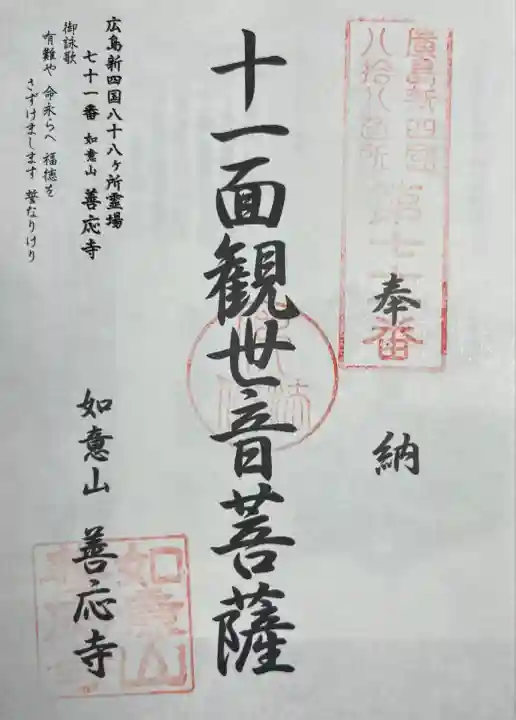 廣島新四國
八拾八箇所第七十一番
奉納
十一面観世音菩薩
広島新四国八十八ヶ所霊場
七十一番 如意山 善応寺
御詠歌
有難や 命永らへ 福徳を
さずけまします 誓なりけり
如意山 善応寺
如意山